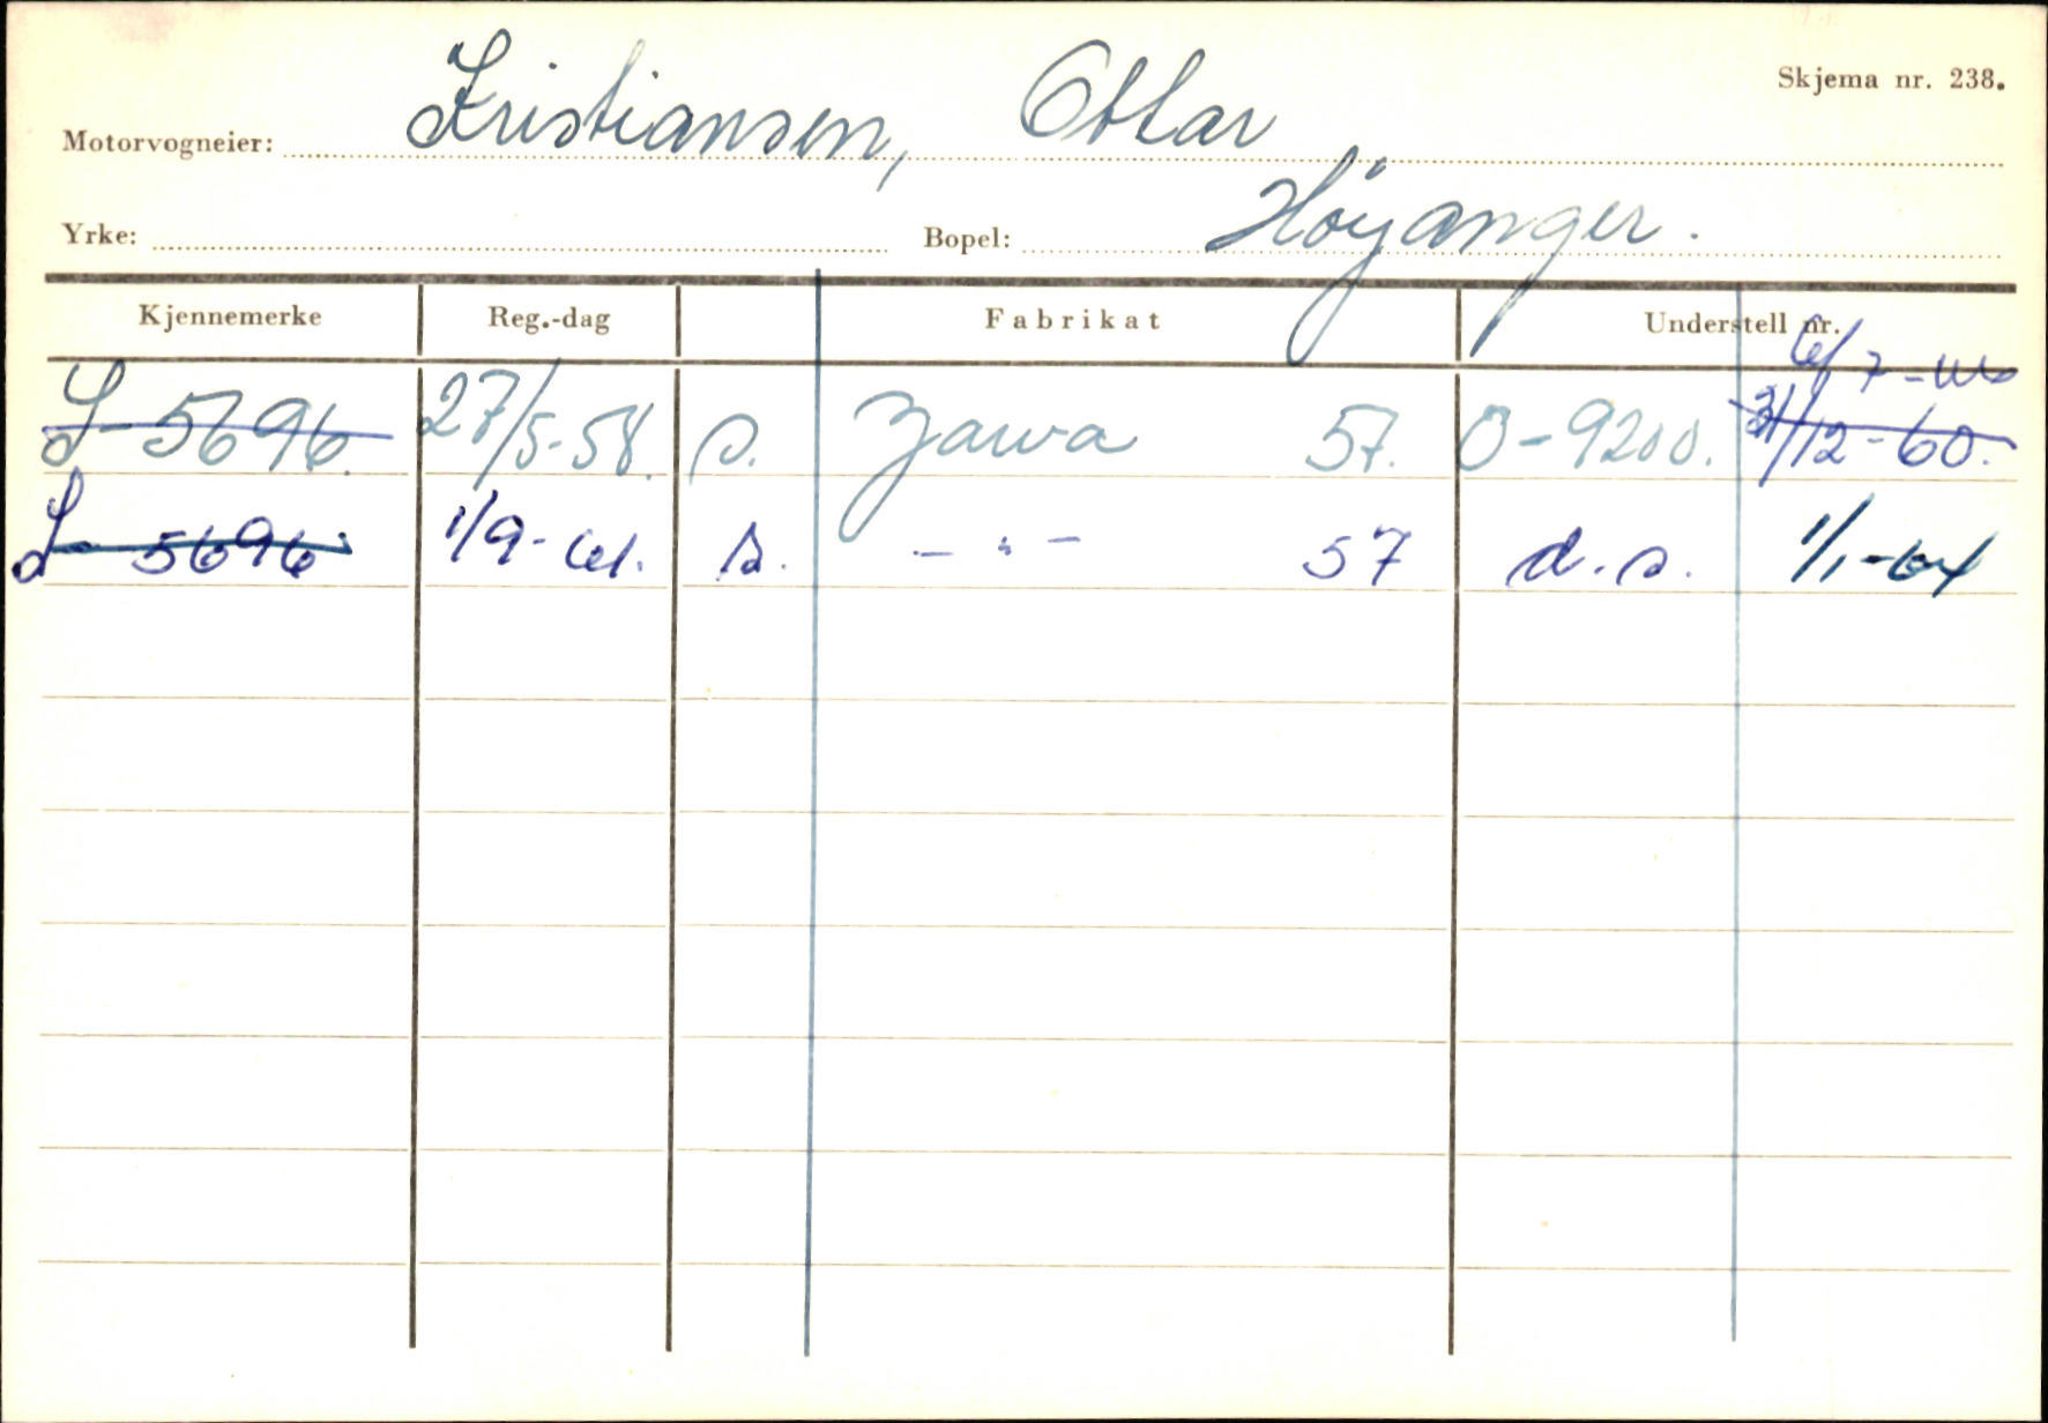 Skjema nr. 238.
Motorvogneier: Kristiansen, Ottar
Yrke: Bopel: Höyanger.
Kjennemerke Reg.-dag Fabrikat Understell nr.
S-5696. 27/5-58. s. Jawa 57. O-9200. 31/12-60.
S-5696 1/9-61. s. -"- 57 d.s. 1/1-64